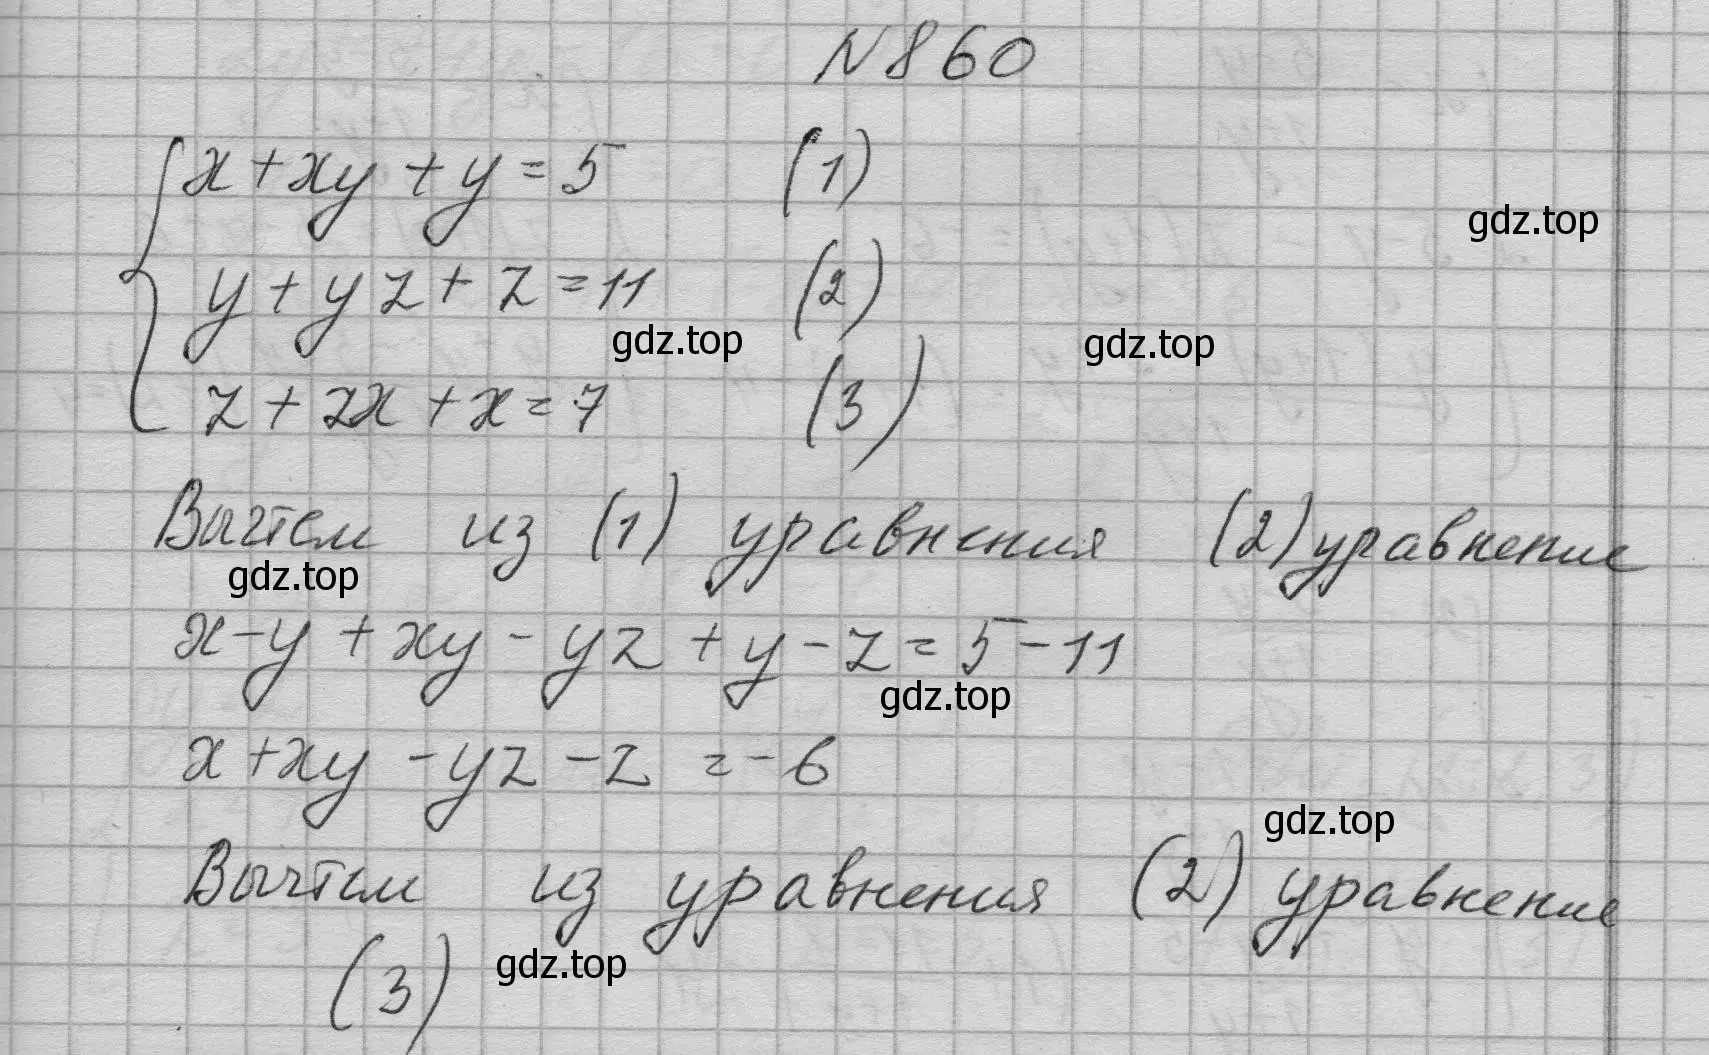 N 860
x + xy + y = 5 (1)
gdz.top
y + yz + z = 11 (2)
gdz.top gdz.top
z + zx + x = 7 (3)
Вычтем из (1) уравнения (2) уравнение
gdz.top
x - y + xy - yz + y - z = 5 - 11
gdz.top
x + xy - yz - z = -6
gdz.top
Вычтем из уравнения (2) уравнение
(3) gdz.top